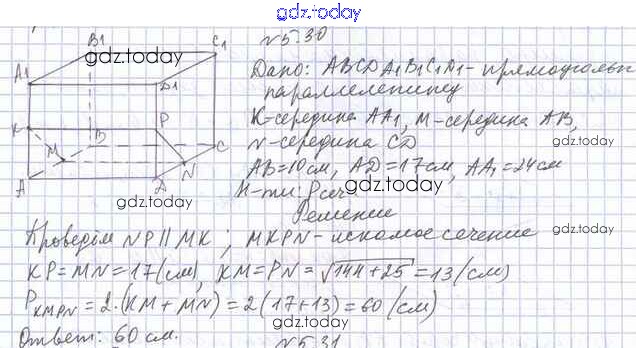 gdz.today
B1 C1 N 5.30
gdz.today gdz.today
A1 D1 Дано: ABCDA1B1C1D1 - прямоугольн
параллелепипед
K P K-середина AA1, M-середина AB,
M B C N-середина CD
A D N AB=10см, AD=17см, AA1=24см
gdz.today
Н-ти: Pсеч gdz.today
Решение
Проведём NP || MK; MKPN - искомое сечение
gdz.today gdz.today
KP=MN=17(см), KM=PN=√144+25=13(см)
PKMPN=2·(KM+MN)=2(17+13)=60(см)
gdz.today
Ответ: 60 см. N 5.31
gdz.today